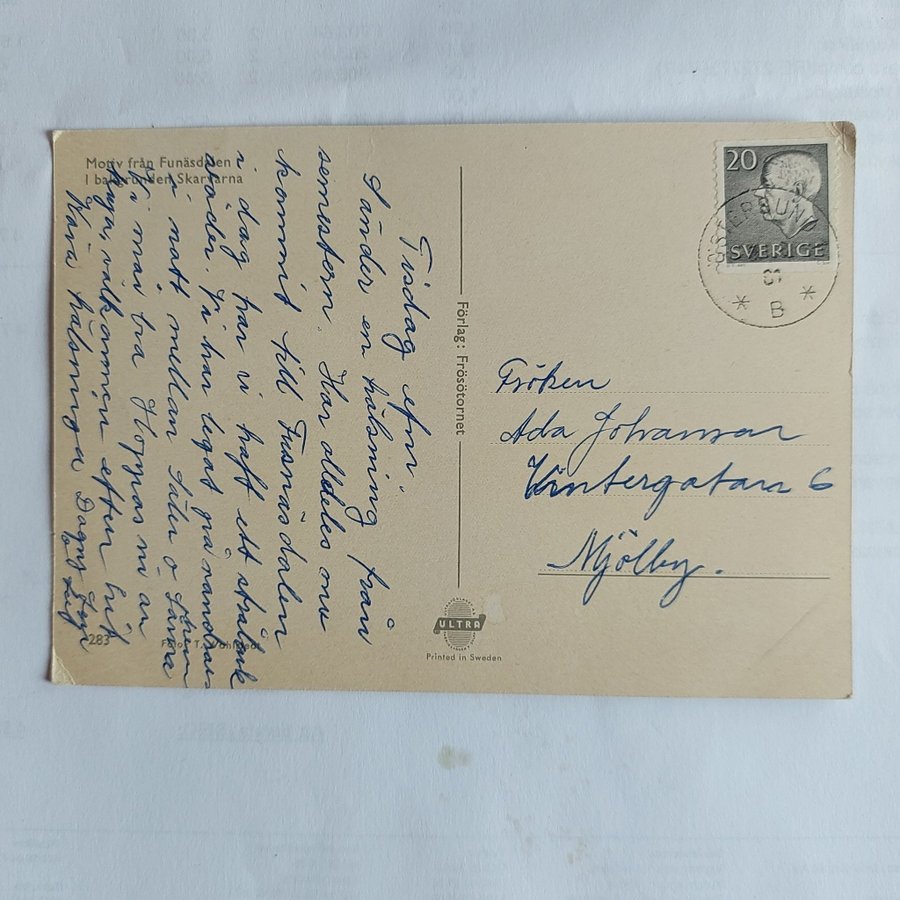 Motiv från Funäsdalen
I bakgrunden Skarvarna
Tisdag efm.
Sänder en hälsning från
semestern. Har alldeles nu
kommit till Funäsdalen
i dag har vi haft ett strålande
väder. Vi har legat på
i natt mellan Säter o Särna
Vi mår bra Hoppas ni är
pigga, välkommen efter hit
Kära hälsninga Dagny
283
Foto: T.
Förlag: Frösötornet
ULTRA
Printed in Sweden
20
SVERIGE
ÖSTERSUND
61
B
Fröken
Ada Johansson
Vintergatan 6
Mjölby.